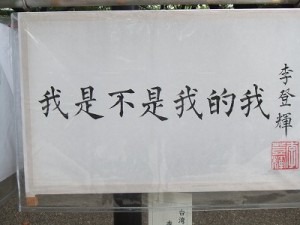 我是不是我的我
李登輝
台湾